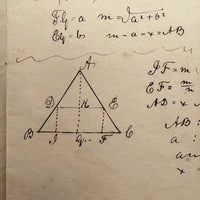 Fg = a   m = √a² + b²
Eg = b   m - a = x = AB
A
D H E
B I G F C
IF = m
EF = m/n
AD = x
AB :
a :
x =